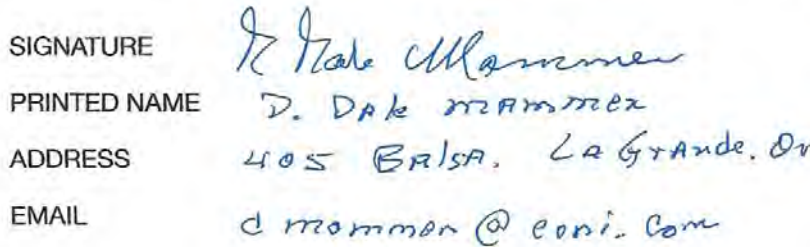 SIGNATURE Dale Mammen
PRINTED NAME D. DAle mAmmen
ADDRESS 405 BAlsA. LA GrAnde. Or
EMAIL d mammen @ eoni. Com